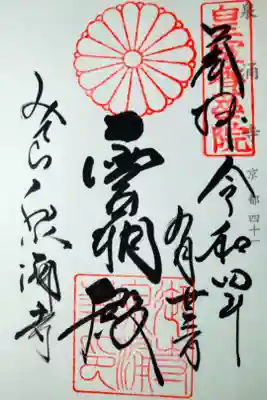 皇室香華院
泉涌寺 京都四十一
奉拝 令和四年
九月廿三日
霊明殿
みてら 泉涌寺